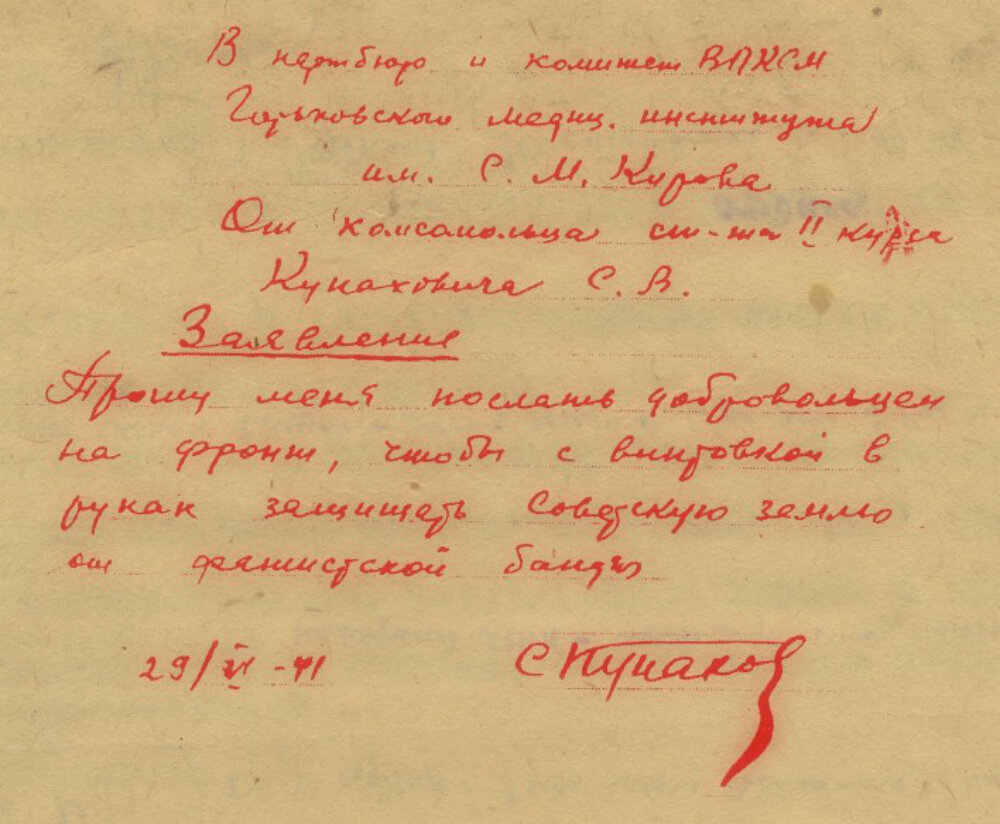 В партбюро и комитет ВЛКСМ
Горьковского медиц. института
им. С. М. Кирова
От комсомольца ст-та II курса
Кунаховича С. В.
Заявление
Прошу меня послать добровольцем
на фронт, чтобы с винтовкой в
руках защищать Советскую землю
от фашистской банды
29/VI-41